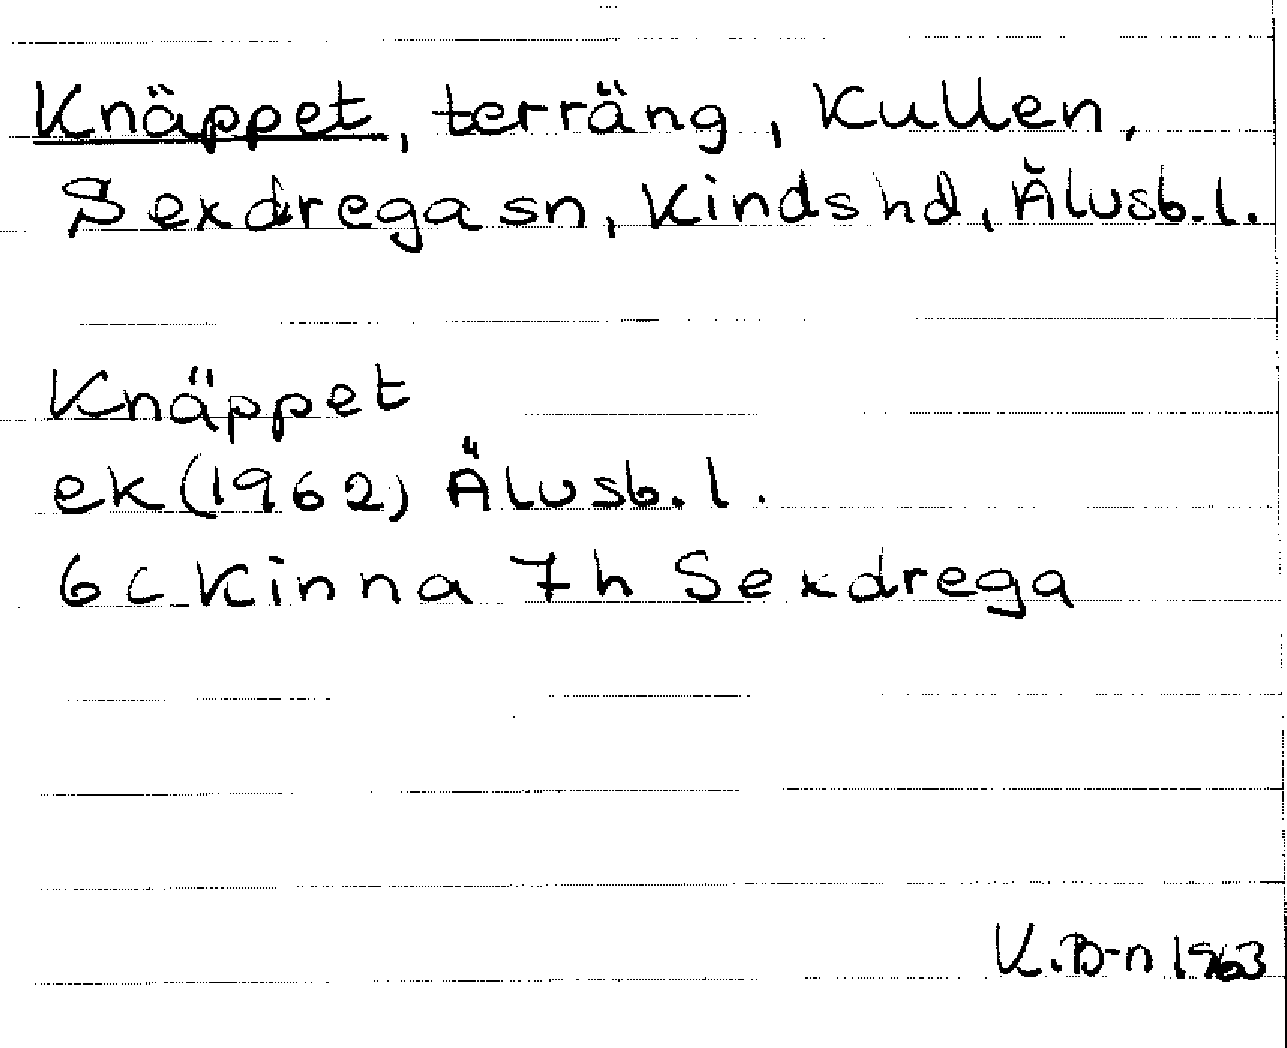 Knäppet, terräng, Kullen,
Sexdrega sn, Kinds hd, Älvsb. l.
Knäppet
ek (1962) Älvsb. l.
6 c Kinna 7 h Sexdrega
K. B-n 1963